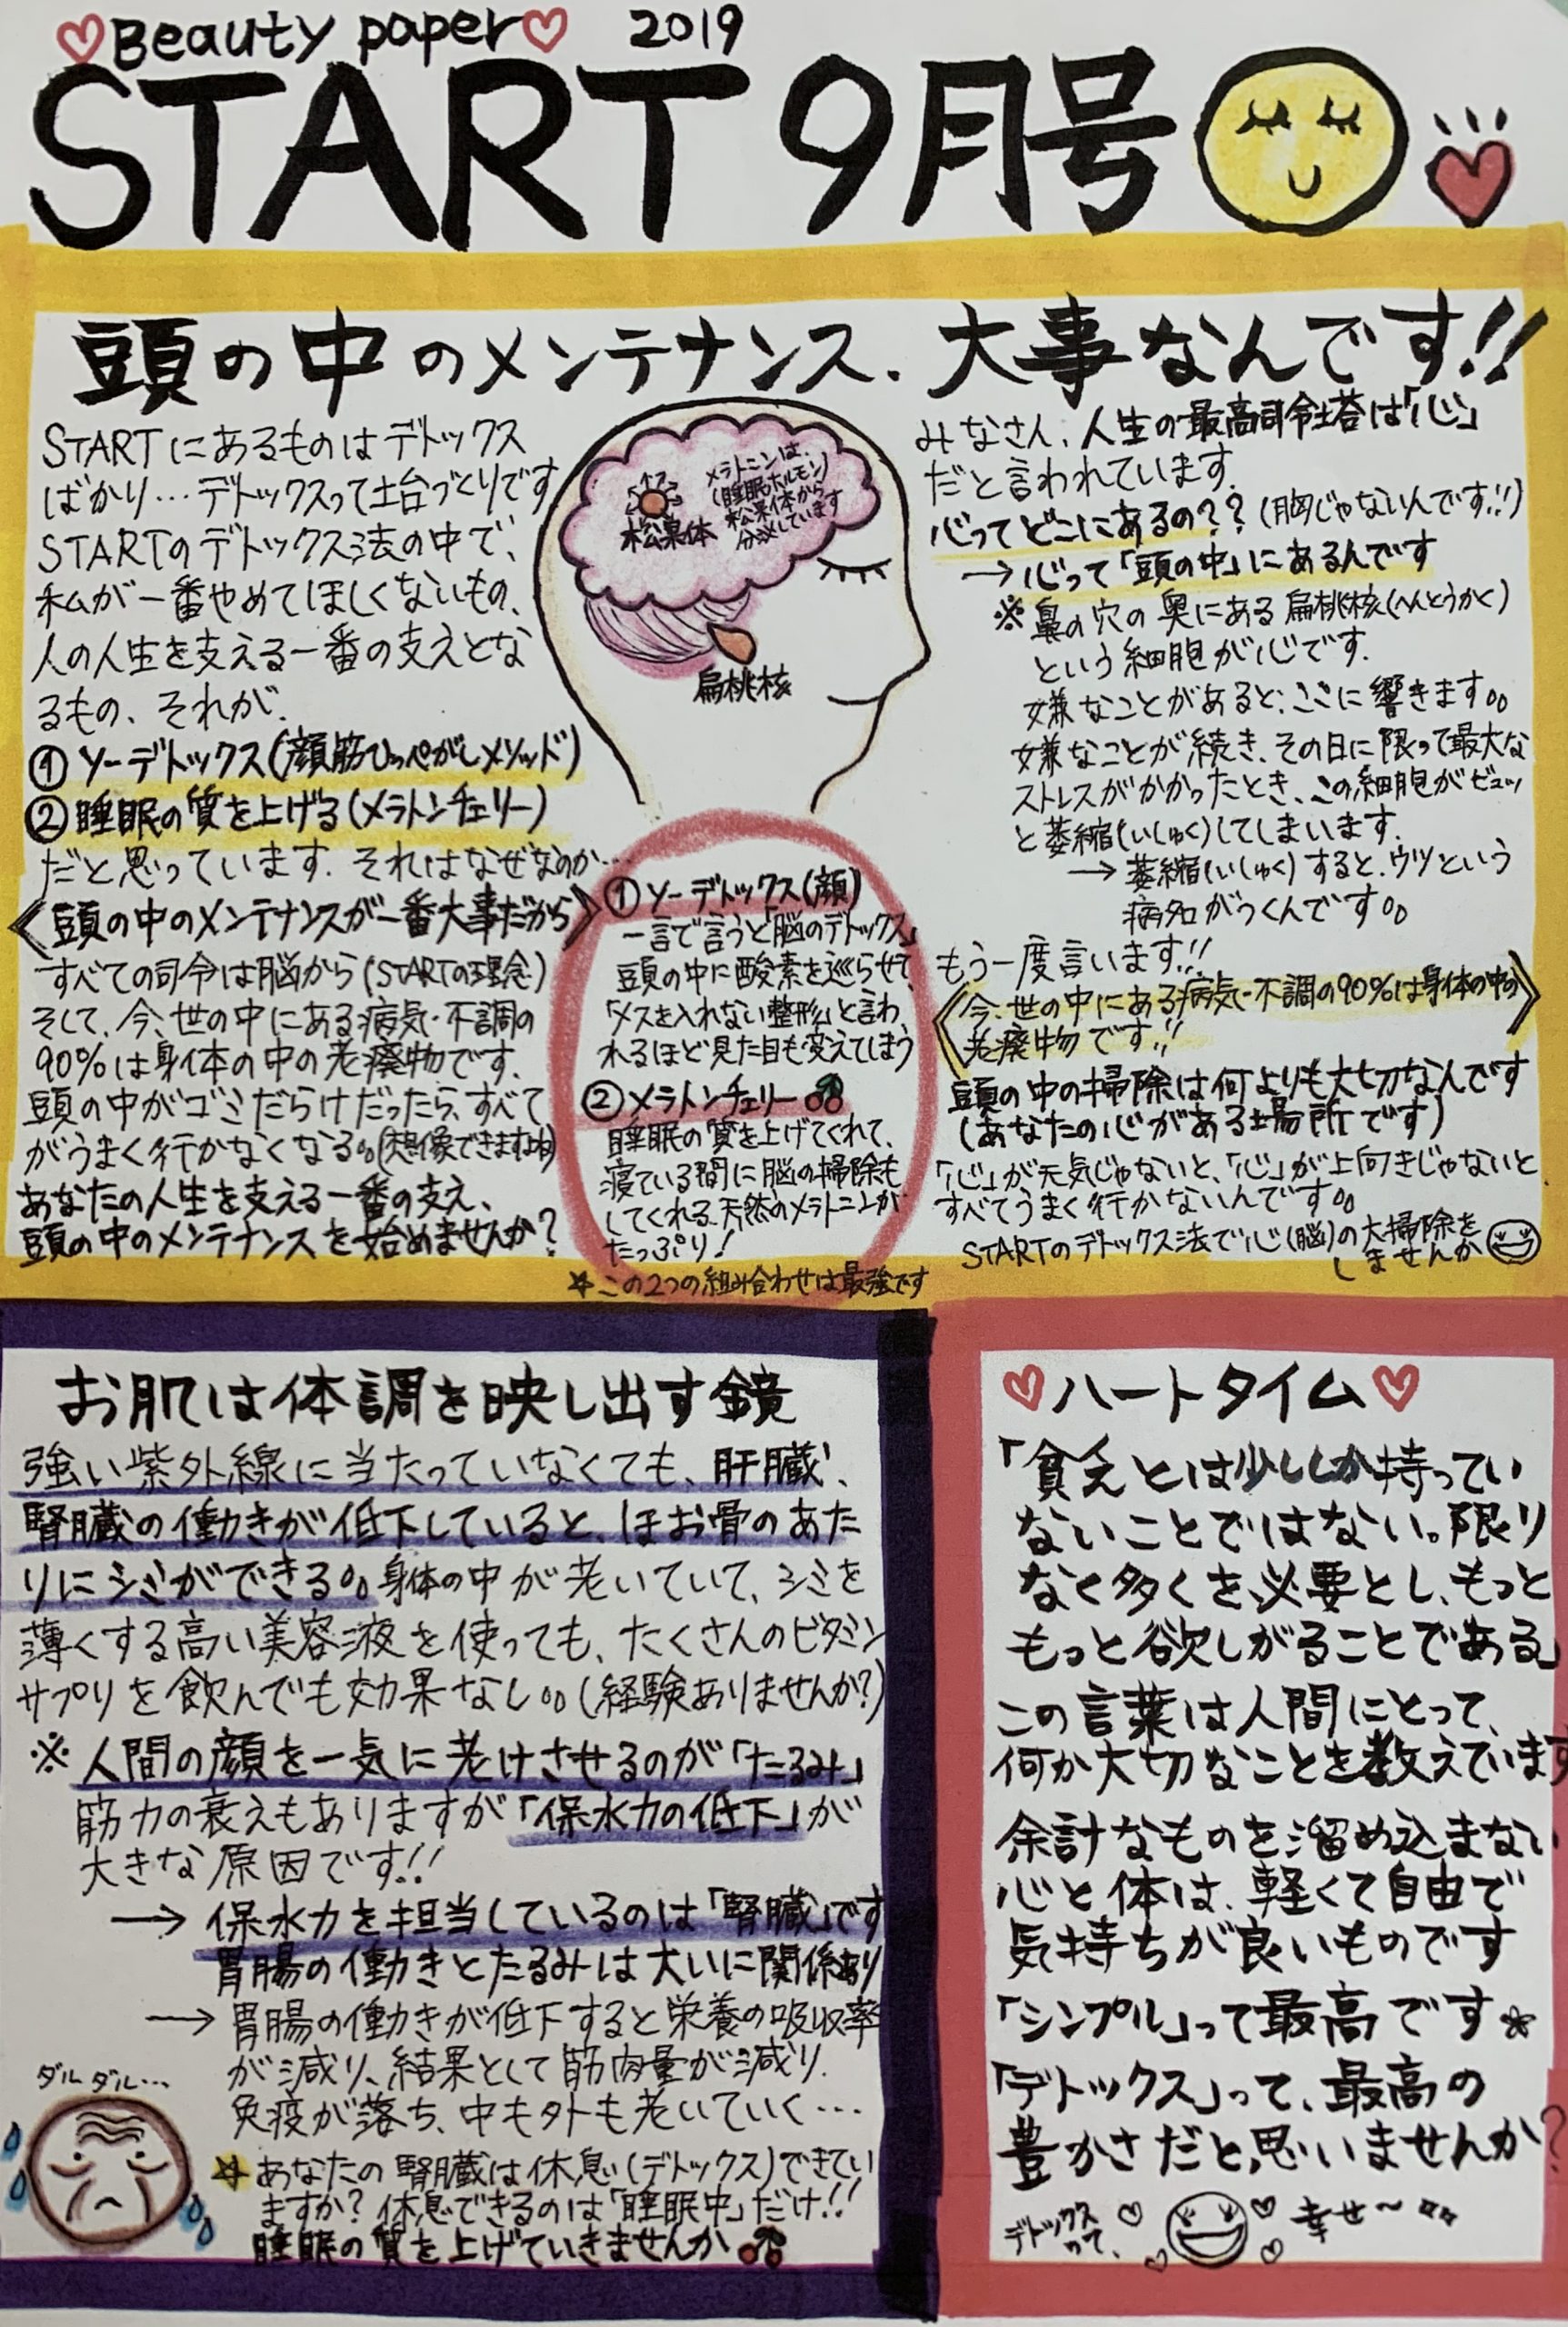 Beauty paper 2019
START 9月号
頭の中のメンテナンス、大事なんです!!
STARTにあるものはデトックス
ばかり…デトックスって土台づくりです
STARTのデトックス法の中で、
私が一番やめてほしくないもの、
人の人生を支える一番の支えとな
るもの、それが、
①ソーデトックス(顔筋ひっぺがしメソッド)
②睡眠の質を上げる(メラトンチェリー)
だと思っています。それはなぜなのか…
《頭の中のメンテナンスが一番大事だから》
すべての司令は脳から(STARTの理念)
そして、今、世の中にある病気・不調の
90%は身体の中の老廃物です。
頭の中がゴミだらけだったら、すべて
がうまく行かなくなる。。(想像できますよね)
あなたの人生を支える一番の支え、
頭の中のメンテナンスを始めませんか?
松果体
メラトニンは、
(睡眠ホルモン)
松果体から
分泌しています
扁桃核
①ソーデトックス(顔)
一言で言うと「脳のデトックス」
頭の中に酸素を巡らせて、
「メスを入れない整形」と言わ
れるほど見た目も変えてしまう
②メラトンチェリー
睡眠の質を上げてくれて、
寝ている間に脳の掃除も
してくれる。天然のメラトニンが
たっぷり!
☆この2つの組み合わせは最強です
みなさん、人生の最高司令塔は「心」
だと言われています。
心ってどこにあるの??(胸じゃないんです!!)
→心って「頭の中」にあるんです
※鼻の穴の奥にある扁桃核(へんとうかく)
という細胞が心です。
嫌なことがあると、ここに響きます。。
嫌なことが続き、その日に限って最大な
ストレスがかかったとき、この細胞がピュッ
と萎縮(いしゅく)してしまいます。
→萎縮(いしゅく)すると、ウツという
病名がつくんです。。
もう一度言います!!
《今、世の中にある病気・不調の90%は身体の中の
老廃物です!!》
頭の中の掃除は何よりも大切なんです
(あなたの心がある場所です)
「心」が元気じゃないと、「心」が上向きじゃないと
すべてうまく行かないんです。。
STARTのデトックス法で心(脳)の大掃除を
しませんか
お肌は体調を映し出す鏡
強い紫外線に当たっていなくても、肝臓、
腎臓の働きが低下していると、ほお骨のあた
りにシミができる。。身体の中が老いていて、シミを
薄くする高い美容液を使っても、たくさんのビタミン
サプリを飲んでも効果なし。。(経験ありませんか?)
※人間の顔を一気に老けさせるのが「たるみ」
筋力の衰えもありますが「保水力の低下」が
大きな原因です!!
→保水力を担当しているのは「腎臓」です
胃腸の働きとたるみは大いに関係あり
→胃腸の働きが低下すると栄養の吸収率
が減り、結果として筋肉量が減り、
免疫が落ち、中も外も老いていく…
ダルダル…
☆あなたの腎臓は休息(デトックス)できてい
ますか?休息できるのは「睡眠中」だけ!!
睡眠の質を上げていきませんか
ハートタイム
「貧乏とは少ししか持ってい
ないことではない。限り
なく多くを必要とし、もっと
もっと欲しがることである」
この言葉は人間にとって、
何か大切なことを教えています
余計なものを溜め込まない
心と体は、軽くて自由で
気持ちが良いものです
「シンプル」って最高です☆
「デトックス」って、最高の
豊かさだと思いませんか?
デトックス
って、
幸せ〜